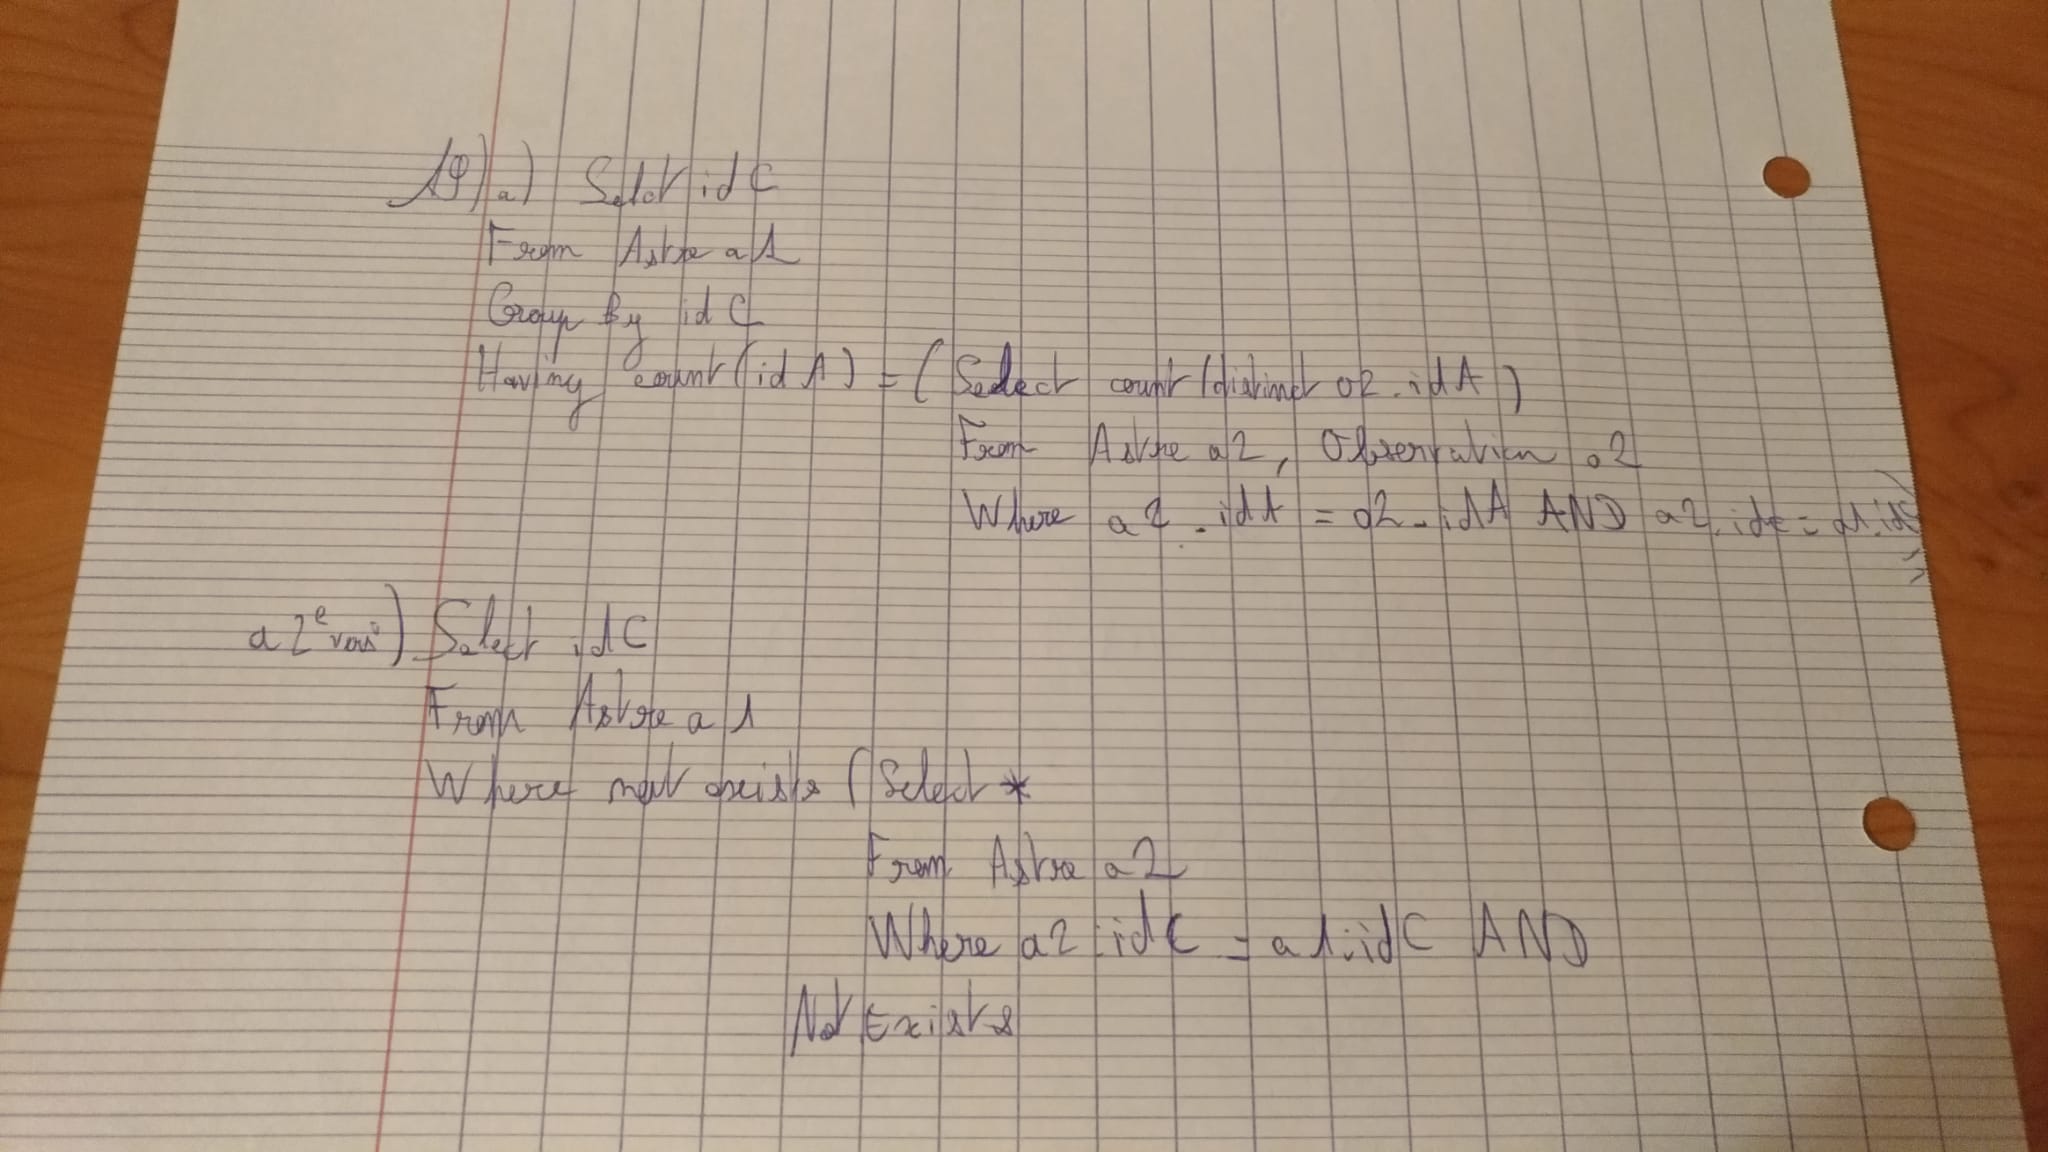 19) a) Select idC
From Astre a1
Group By idC
Having count(idA) = (Select count(distinct o2.idA)
From Astre a2, Observation o2
Where a2.idA = o2.idA AND a2.idC = a1.idC)
)
a 2e versi) Select idC
From Astre a1
Where not exists (Select *
From Astre a2
Where a2.idC = a1.idC AND
Not Exists